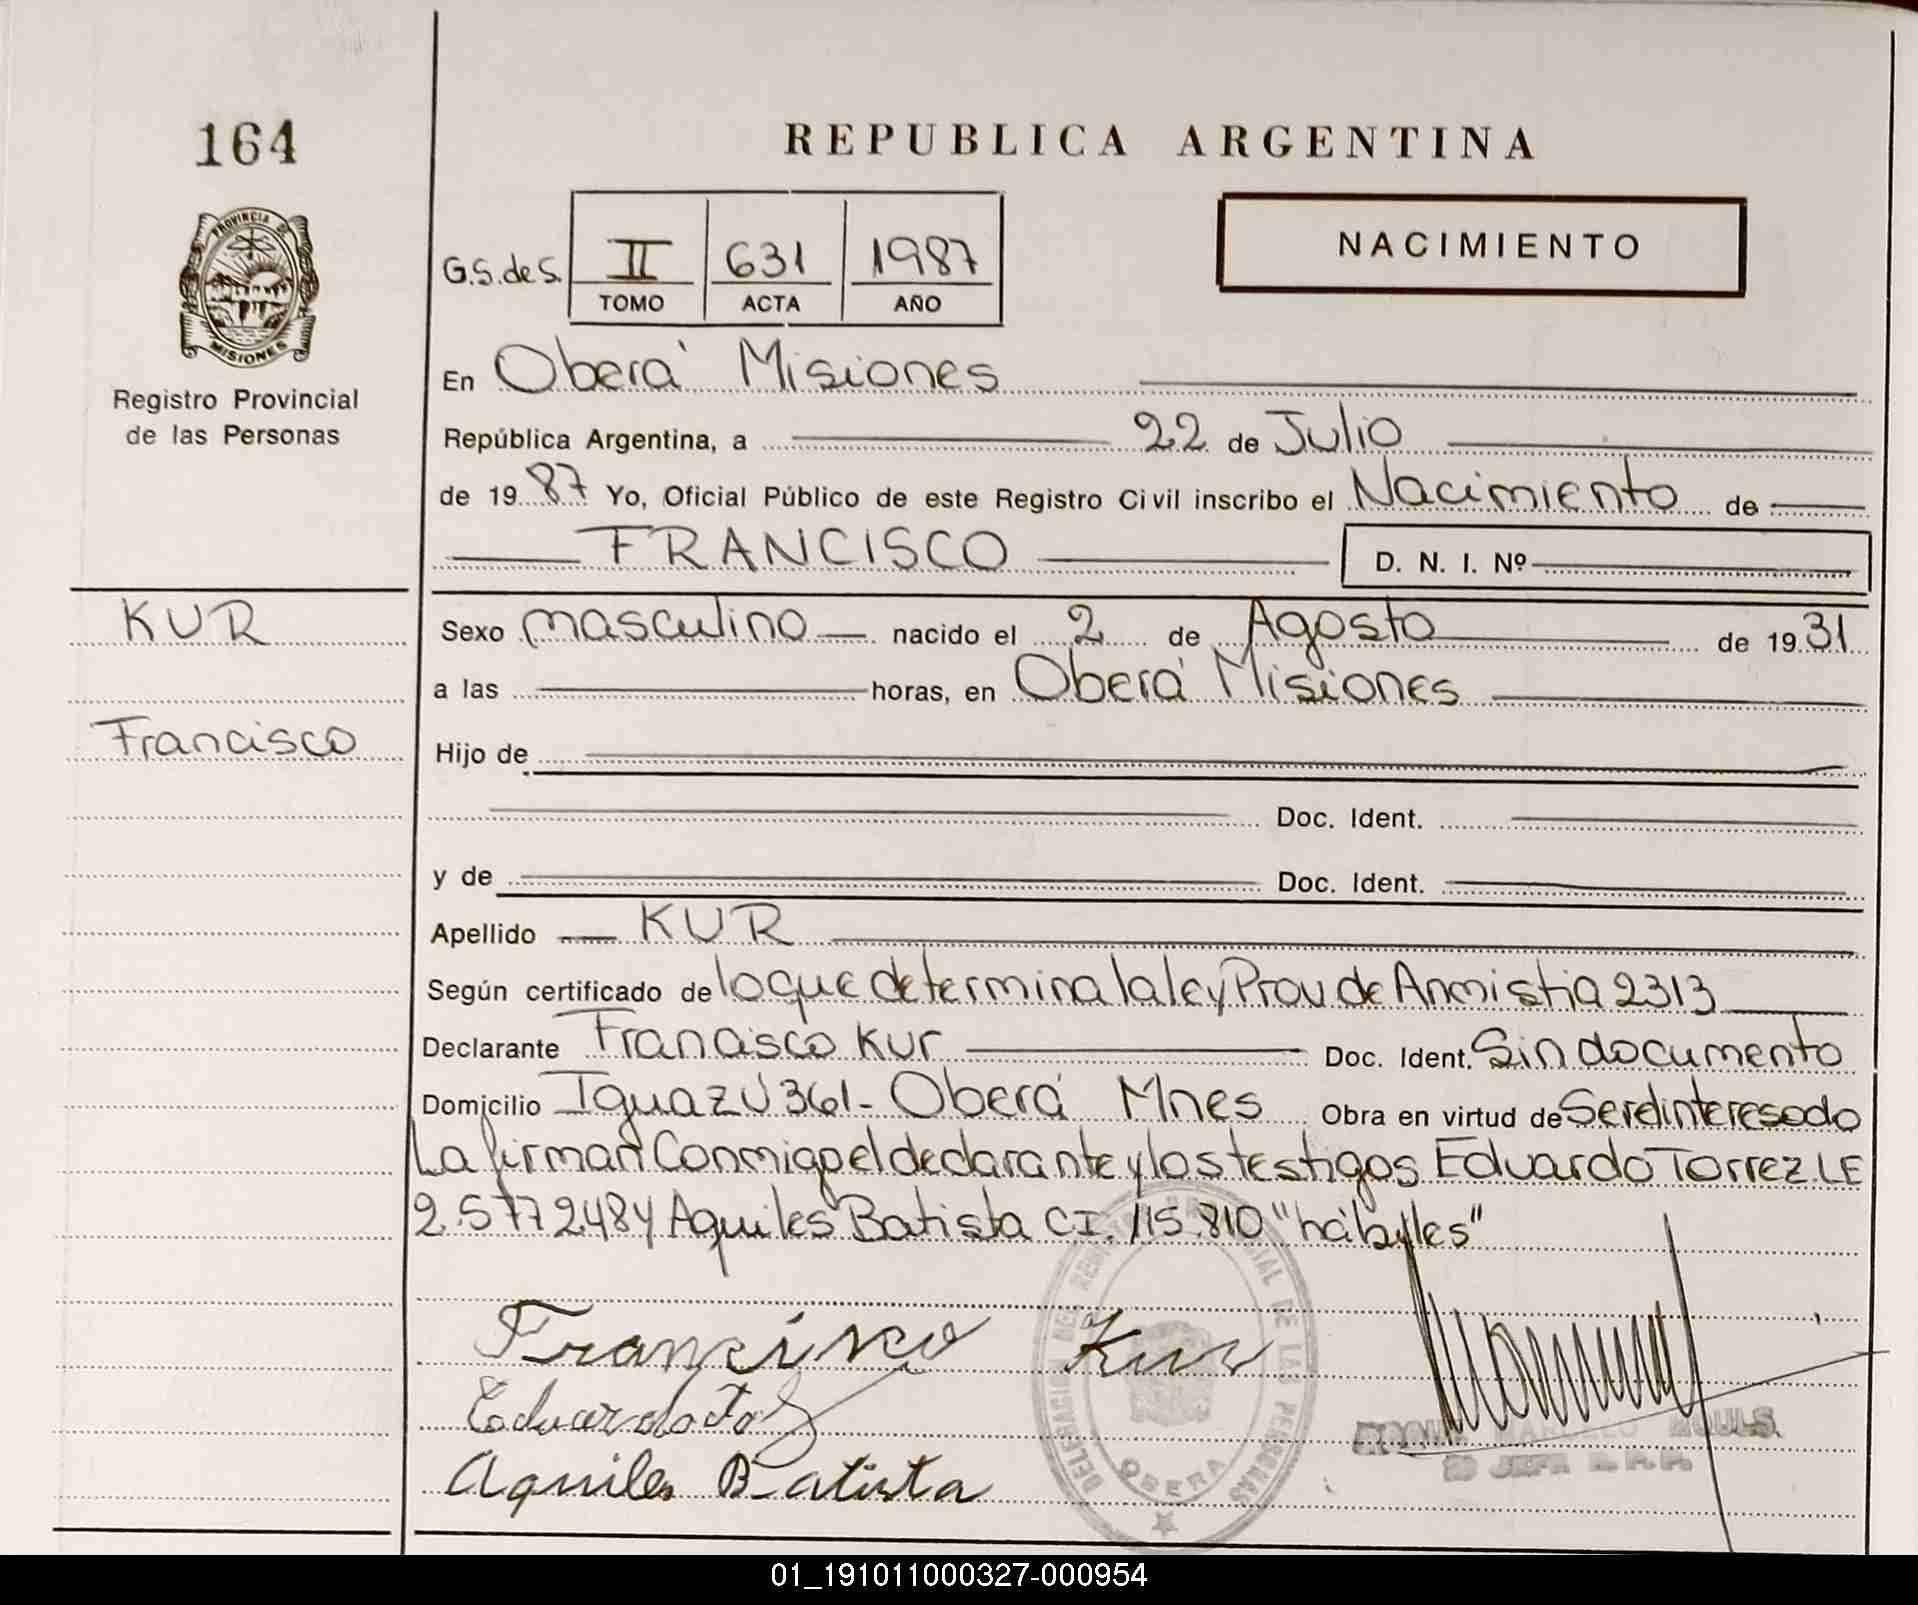 164
REPUBLICA ARGENTINA
PROVINCIA DE
MISIONES
Registro Provincial
de las Personas
NACIMIENTO
G.S.de S. II 631 1987
TOMO ACTA AÑO
En Oberá Misiones
República Argentina, a 22 de Julio
de 19 87 Yo, Oficial Público de este Registro Civil inscribo el Nacimiento de
FRANCISCO D. N. I. Nº
KUR
Francisco
Sexo masculino nacido el 2 de Agosto de 19 31
a las horas, en Oberá Misiones
Hijo de
Doc. Ident.
y de Doc. Ident.
Apellido KUR
Según certificado de lo que determina la ley Prov de Anmistia 2313
Declarante Francisco Kur Doc. Ident. Sin documento
Domicilio Iguazú 361- Oberá Mnes Obra en virtud de Ser el interesado
La firman Conmigo el declarante y los testigos Eduardo Torrez LE
2.577248 y Aquiles Batista CI. 115.810 "hábiles"
Francisco Kur
Eduardo
Aquiles Batista
DELEGACION DEL REGISTRO PROVINCIAL DE LAS PERSONAS
OBERA
JEFA R.P.P.
01_191011000327-000954